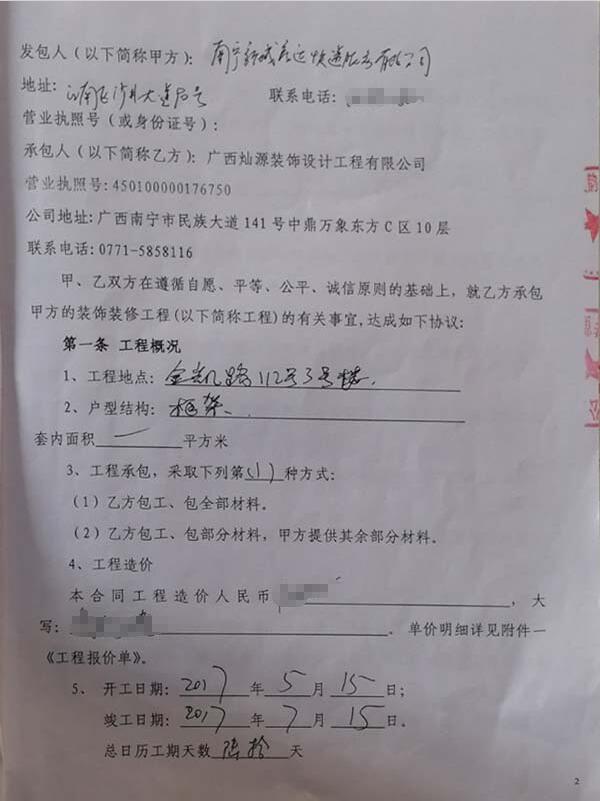 发包人（以下简称甲方）：南宁新成差运快递服务有限公司
地址：江南区沙井大道 联系电话：
营业执照号（或身份证号）：
承包人（以下简称乙方）：广西灿源装饰设计工程有限公司
营业执照号:450100000176750
公司地址:广西南宁市民族大道141号中鼎万象东方C区10层
联系电话:0771-5858116
甲、乙双方在遵循自愿、平等、公平、诚信原则的基础上，就乙方承包
甲方的装饰装修工程(以下简称工程)的有关事宜,达成如下协议:
第一条 工程概况
1、工程地点：金凯路112号3号楼.
2、户型结构：框架、
套内面积 一 平方米
3、工程承包，采取下列第(1)种方式：
（1）乙方包工、包全部材料。
（2）乙方包工、包部分材料，甲方提供其余部分材料。
4、工程造价
本合同工程造价人民币 ，大
写： 。单价明细详见附件一
《工程报价单》。
5、开工日期：2017年5月15日；
竣工日期：2017年7月15日。
总日历工期天数 陆拾 天
2